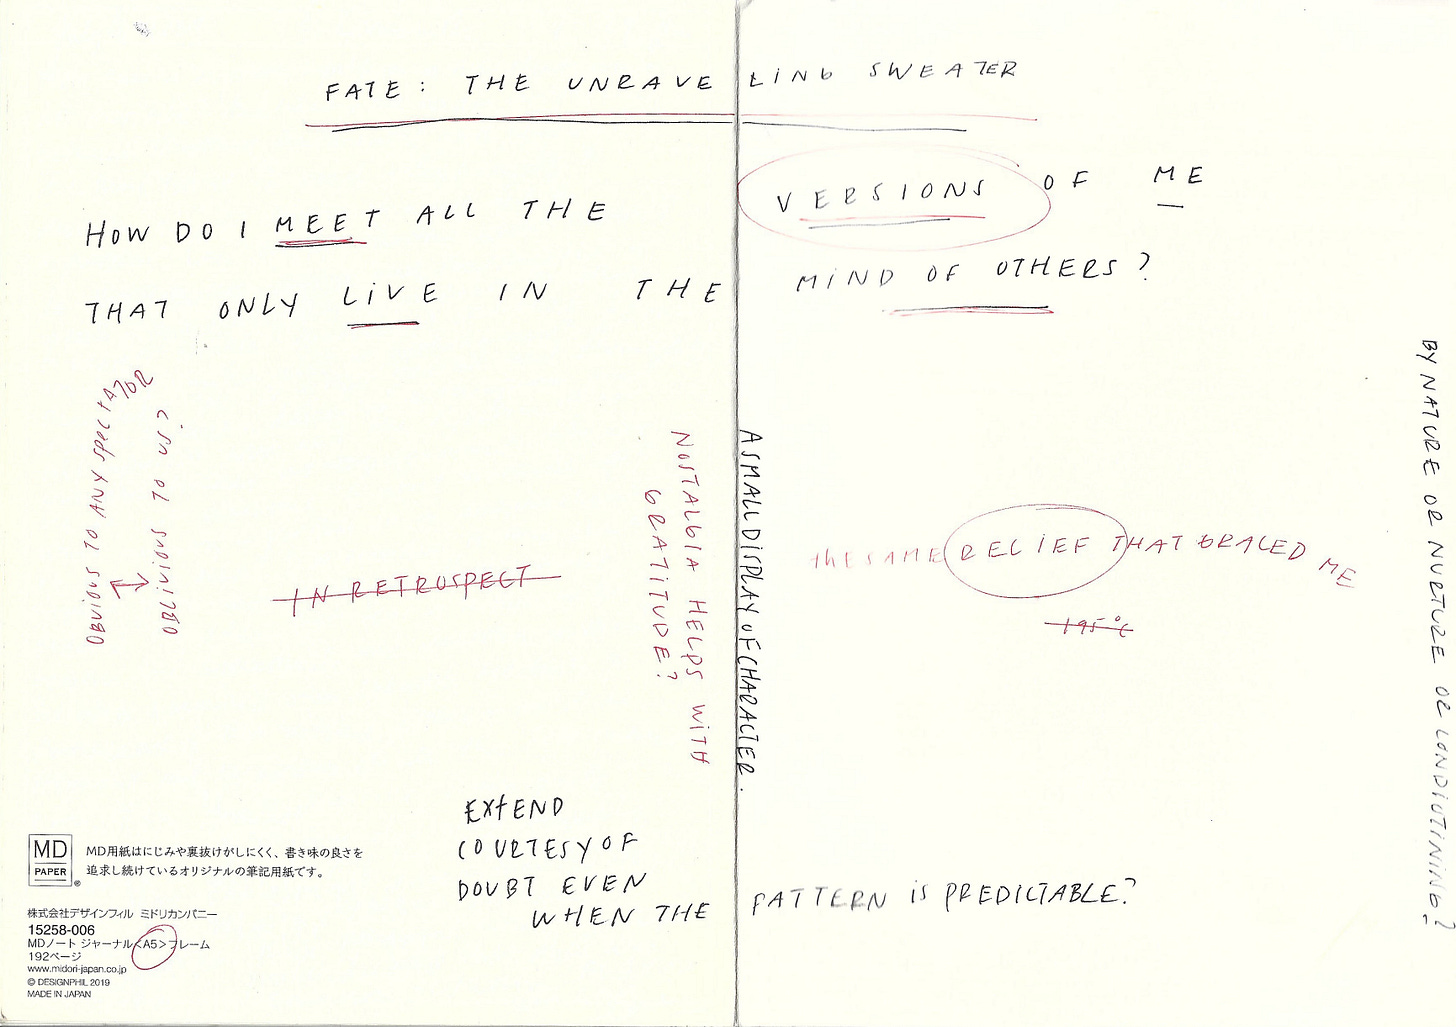 FATE: THE UNRAVELING SWEATER
HOW DO I MEET ALL THE VERSIONS OF ME
THAT ONLY LIVE IN THE MIND OF OTHERS?
OBVIOUS TO ANY SPECTATOR
OBLIVIOUS TO US
IN RETROSPECT
NOSTALGIA HELPS WITH
GRATITUDE?
A SMALL DISPLAY OF CHARACTER.
THE SAME RELIEF THAT GRACED ME
195°C
BY NATURE OR NURTURE OR CONDIUTINING?
EXTEND
COURTESY OF
DOUBT EVEN
WHEN THE PATTERN IS PREDICTABLE?
MD
PAPER
®
MD用紙はにじみや裏抜けがしにくく、書き味の良さを
追求し続けているオリジナルの筆記用紙です。
株式会社デザインフィル ミドリカンパニー
15258-006
MDノート ジャーナル<A5>フレーム
192ページ
www.midori-japan.co.jp
© DESIGNPHIL 2019
MADE IN JAPAN